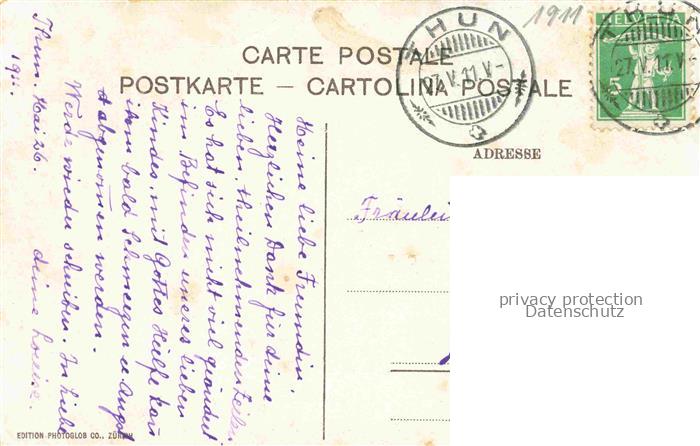 1911
CARTE POSTALE
POSTKARTE — CARTOLINA POSTALE
THUN
27.V.11.V-
HELVETIA
5
27.V.11.V-
ADRESSE
Thun. Mai 26.
1911.
Meine liebe Freundin!
Herzlichen Dank für deine
lieben, theilnehmenden Zeilen.
Es hat sich nicht viel geändert
im Befinden unseres lieben
Kindes, mit Gottes Hülfe kan
ihm bald Schmerzen u Angst
abgenomen werden.
Werde wieder schreiben. In Liebe
deine Louise.
Fräulein
privacy protection
Datenschutz
EDITION PHOTOGLOB CO., ZÜRICH